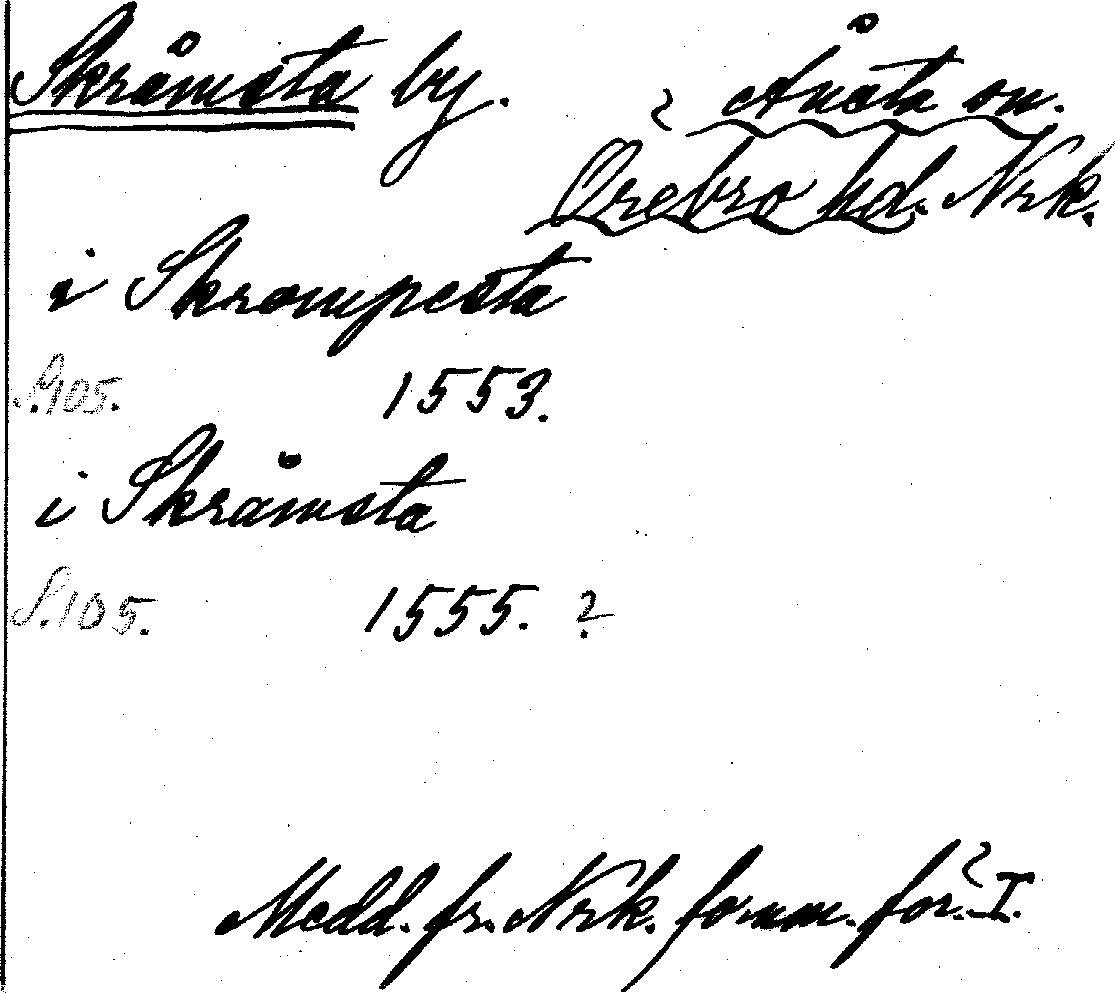 Skråmsta by. Ånsta sn.
Örebro hd. Nrk.
i Skrompesta
S.105. 1553.
i Skråmsta
S.105. 1555. ?
Medd. fr. Nrk. fornm. för. I.